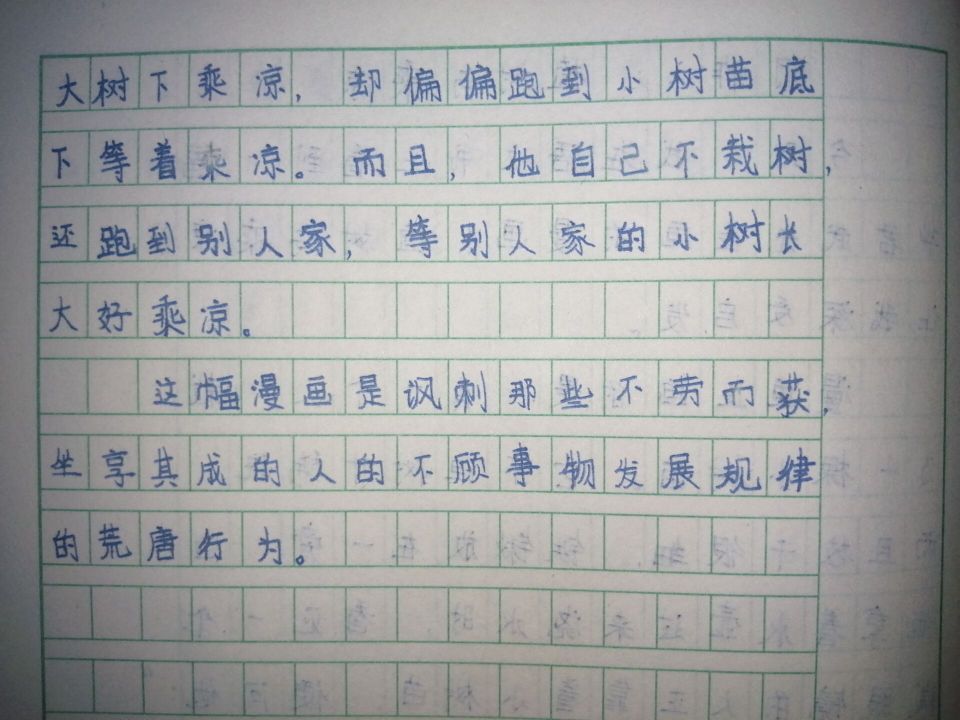 大树下乘凉，却偏偏跑到小树苗底
下等着乘凉。而且，他自己不栽树，
还跑到别人家，等别人家的小树长
大好乘凉。
这幅漫画是讽刺那些不劳而获，
坐享其成的人的不顾事物发展规律
的荒唐行为。